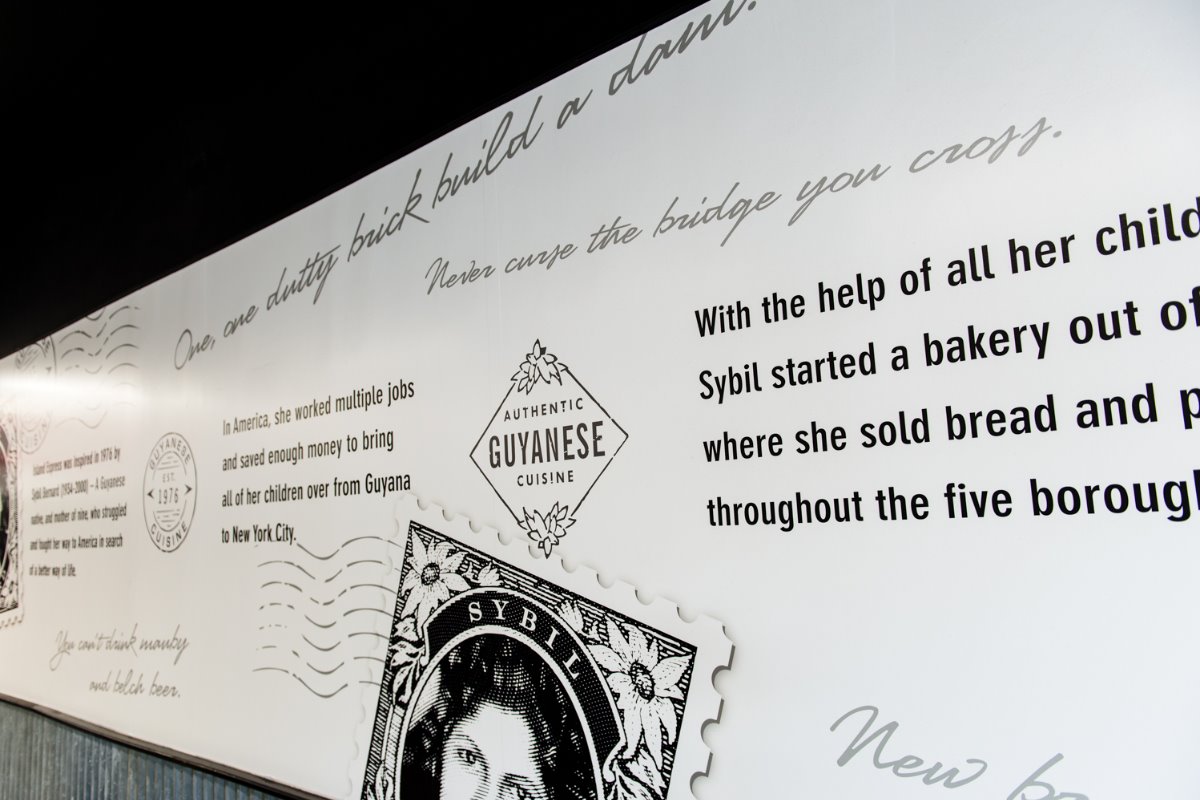 One, one dutty brick build a dam.
Never curse the bridge you cross.
Island Express was inspired in 1976 by
Sybil Bernard (1934-2000) – A Guyanese
native, and mother of nine, who struggled
and fought her way to America in search
of a better way of life.
GUYANESE
EST.
1976
CUISINE
In America, she worked multiple jobs
and saved enough money to bring
all of her children over from Guyana
to New York City.
AUTHENTIC
GUYANESE
CUISINE
With the help of all her child
Sybil started a bakery out of
where she sold bread and p
throughout the five boroug
You can't drink mauby
and belch beer.
SYBIL
New b